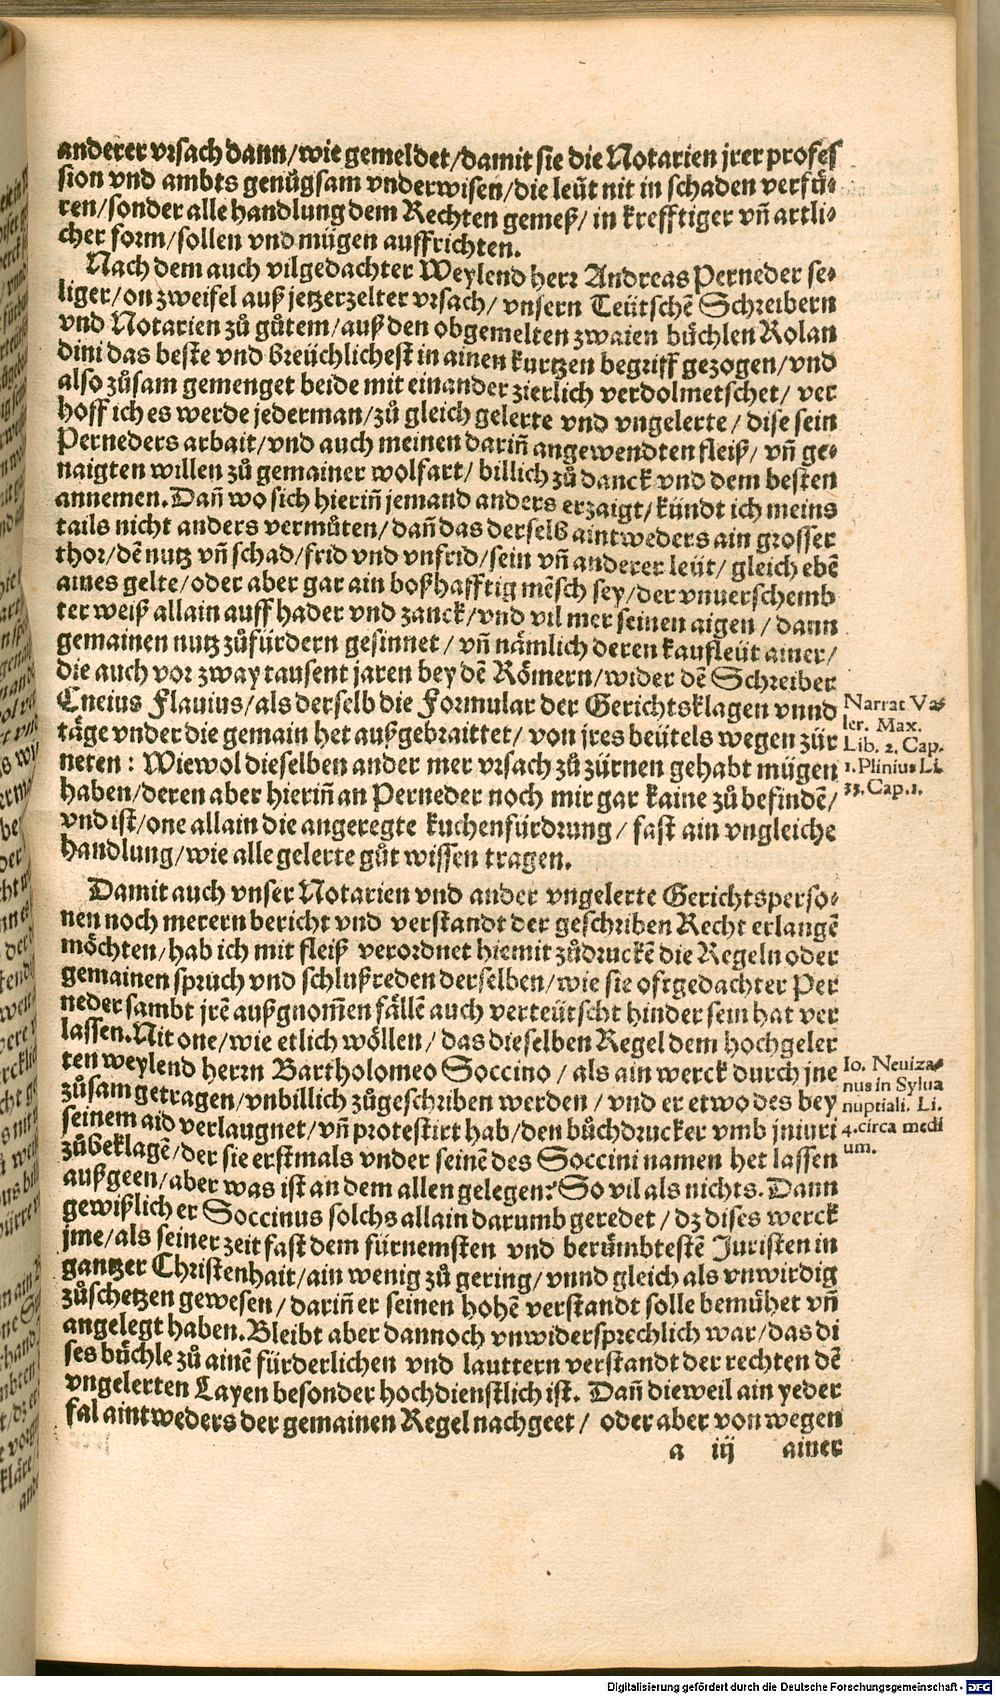 anderer vrsach dann/wie gemeldet/damit sie die Notarien jrer profes
sion vnd ambts genůgsam vnderwisen/die leüt nit in schaden verfů⸗
ren/sonder alle handlung dem Rechten gemeß/in krefftiger vñ artli⸗
cher form/sollen vnd mügen auffrichten.
Nach dem auch vilgedachter Weylend herr Andreas Perneder se⸗
liger/on zweifel auß jetzerzelter vrsach/vnsern Teütschẽ Schreibern
vnd Notarien zů gůtem/auß den obgemelten zwaien bůchlen Rolan
dini das beste vnd breüchlichest in ainen kurtzen begriff gezogen/vnd
also zůsam gemenget beide mit einander zierlich verdolmetschet/ ver
hoff ich es werde jederman/zů gleich gelerte vnd vngelerte/dise sein
Perneders arbait/vnd auch meinen dariñ angewendten fleiß/vñ ge⸗
naigten willen zů gemainer wolfart/billich zů danck vnd dem besten
annemen. Dañ wo sich hieriñ jemand anders erzaigt/kündt ich meins
tails nicht anders vermůten/dañ das derselb aintweders ain grosser
thor/dẽ nutz vñ schad/frid vnd vnfrid/sein vñ anderer leüt/gleich ebẽ
aines gelte/oder aber gar ain boßhafftig mẽsch sey/der vnuerschemb
ter weiß allain auff hader vnd zanck/vnd vil mer seinen aigen/dann
gemainen nutz zůfürdern gesinnet/vñ nämlich deren kaufleüt ainer/
die auch vor zway tausent jaren bey dẽ Römern/wider dẽ Schreiber
Cneius Flauius/als derselb die Formular der Gerichtsklagen vnnd
täge vnder die gemain het außgebraittet/von jres beütels wegen zür
neten: Wiewol dieselben ander mer vrsach zů zürnen gehabt mügen
haben/deren aber hieriñ an Perneder noch mir gar kaine zů befindẽ/
vnd ist/one allain die angeregte kuchenfürdrung/fast ain vngleiche
handlung/wie alle gelerte gůt wissen tragen.
Narrat Va⸗
ler. Max.
Lib. 2. Cap.
1. Plinius Li.
33. Cap. 1.
Damit auch vnser Notarien vnd ander vngelerte Gerichtsperso⸗
nen noch merern bericht vnd verstandt der geschriben Recht erlangẽ
möchten/hab ich mit fleiß verordnet hiemit zůdruckẽ die Regeln oder
gemainen spruch vnd schlußreden derselben/wie sie oftgedachter Per
neder sambt jrẽ außgnom̃en fällẽ auch verteütscht hinder sein hat ver
lassen. Nit one/wie etlich wöllen/das dieselben Regel dem hochgeler
ten weylend herrn Bartholomeo Soccino/als ain werck durch jne
zůsam getragen/vnbillich zůgeschriben werden/vnd er etwo des bey
seinem aid verlaugnet/vñ protestirt hab/den bůchdrucker vmb iniuri
zůbeklagẽ/der sie erstmals vnder seinẽ des Soccini namen het lassen
außgeen/aber was ist an dem allen gelegen? So vil als nichts. Dann
gewißlich er Soccinus solchs allain darumb geredet/dz dises werck
jme/als seiner zeit fast dem fürnemsten vnd berůmbtestẽ Juristen in
gantzer Christenhait/ain wenig zů gering/vnnd gleich als vnwirdig
zůschetzen gewesen/dariñ er seinen hohẽ verstandt solle bemühet vñ
angelegt haben. Bleibt aber dannoch vnwidersprechlich war/das di
ses bůchle zů ainẽ fürderlichen vnd lauttern verstandt der rechten dẽ
vngelerten Layen besonder hochdienstlich ist. Dañ dieweil ain yeder
fal aintweders der gemainen Regel nachgeet/ oder aber von wegen
Io. Neuiza⸗
nus in Sylua
nuptiali. Li.
4. circa medi
um.
a iij ainer
Digitalisierung gefördert durch die Deutsche Forschungsgemeinschaft - DFG